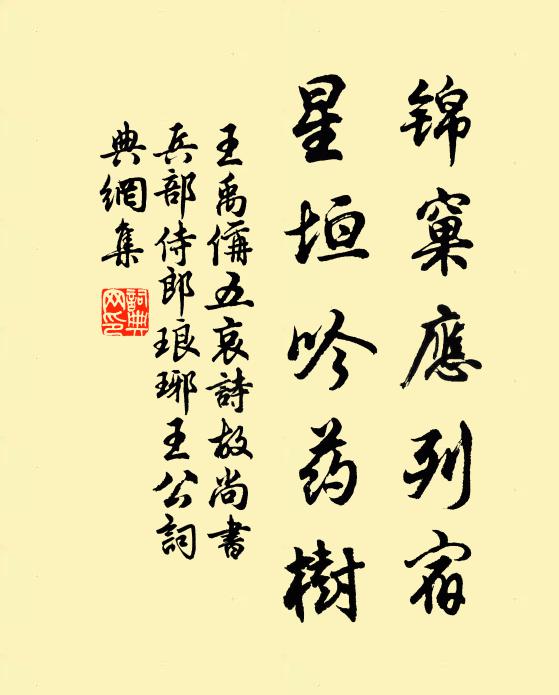 锦窠應列宿
星垣吟药樹
王禹偁五哀詩故尚書
兵部侍郎琅琊王公詞
典網集
詞典網印